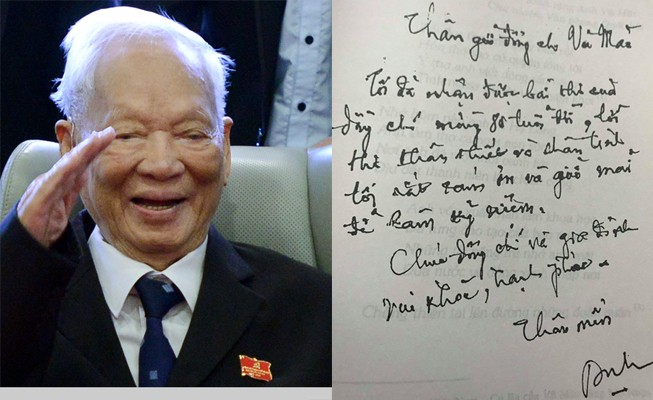 Thân gửi đồng chí Vũ Mão
Tôi đã nhận được bài thơ của
đồng chí mừng 80 tuổi tôi, lời
thơ thân thiết và chân tình
tôi rất cám ơn và giữ mãi
để làm kỷ niệm.
Chúc đồng chí và gia đình
vui khoẻ, hạnh phúc
Thân mến
Anh